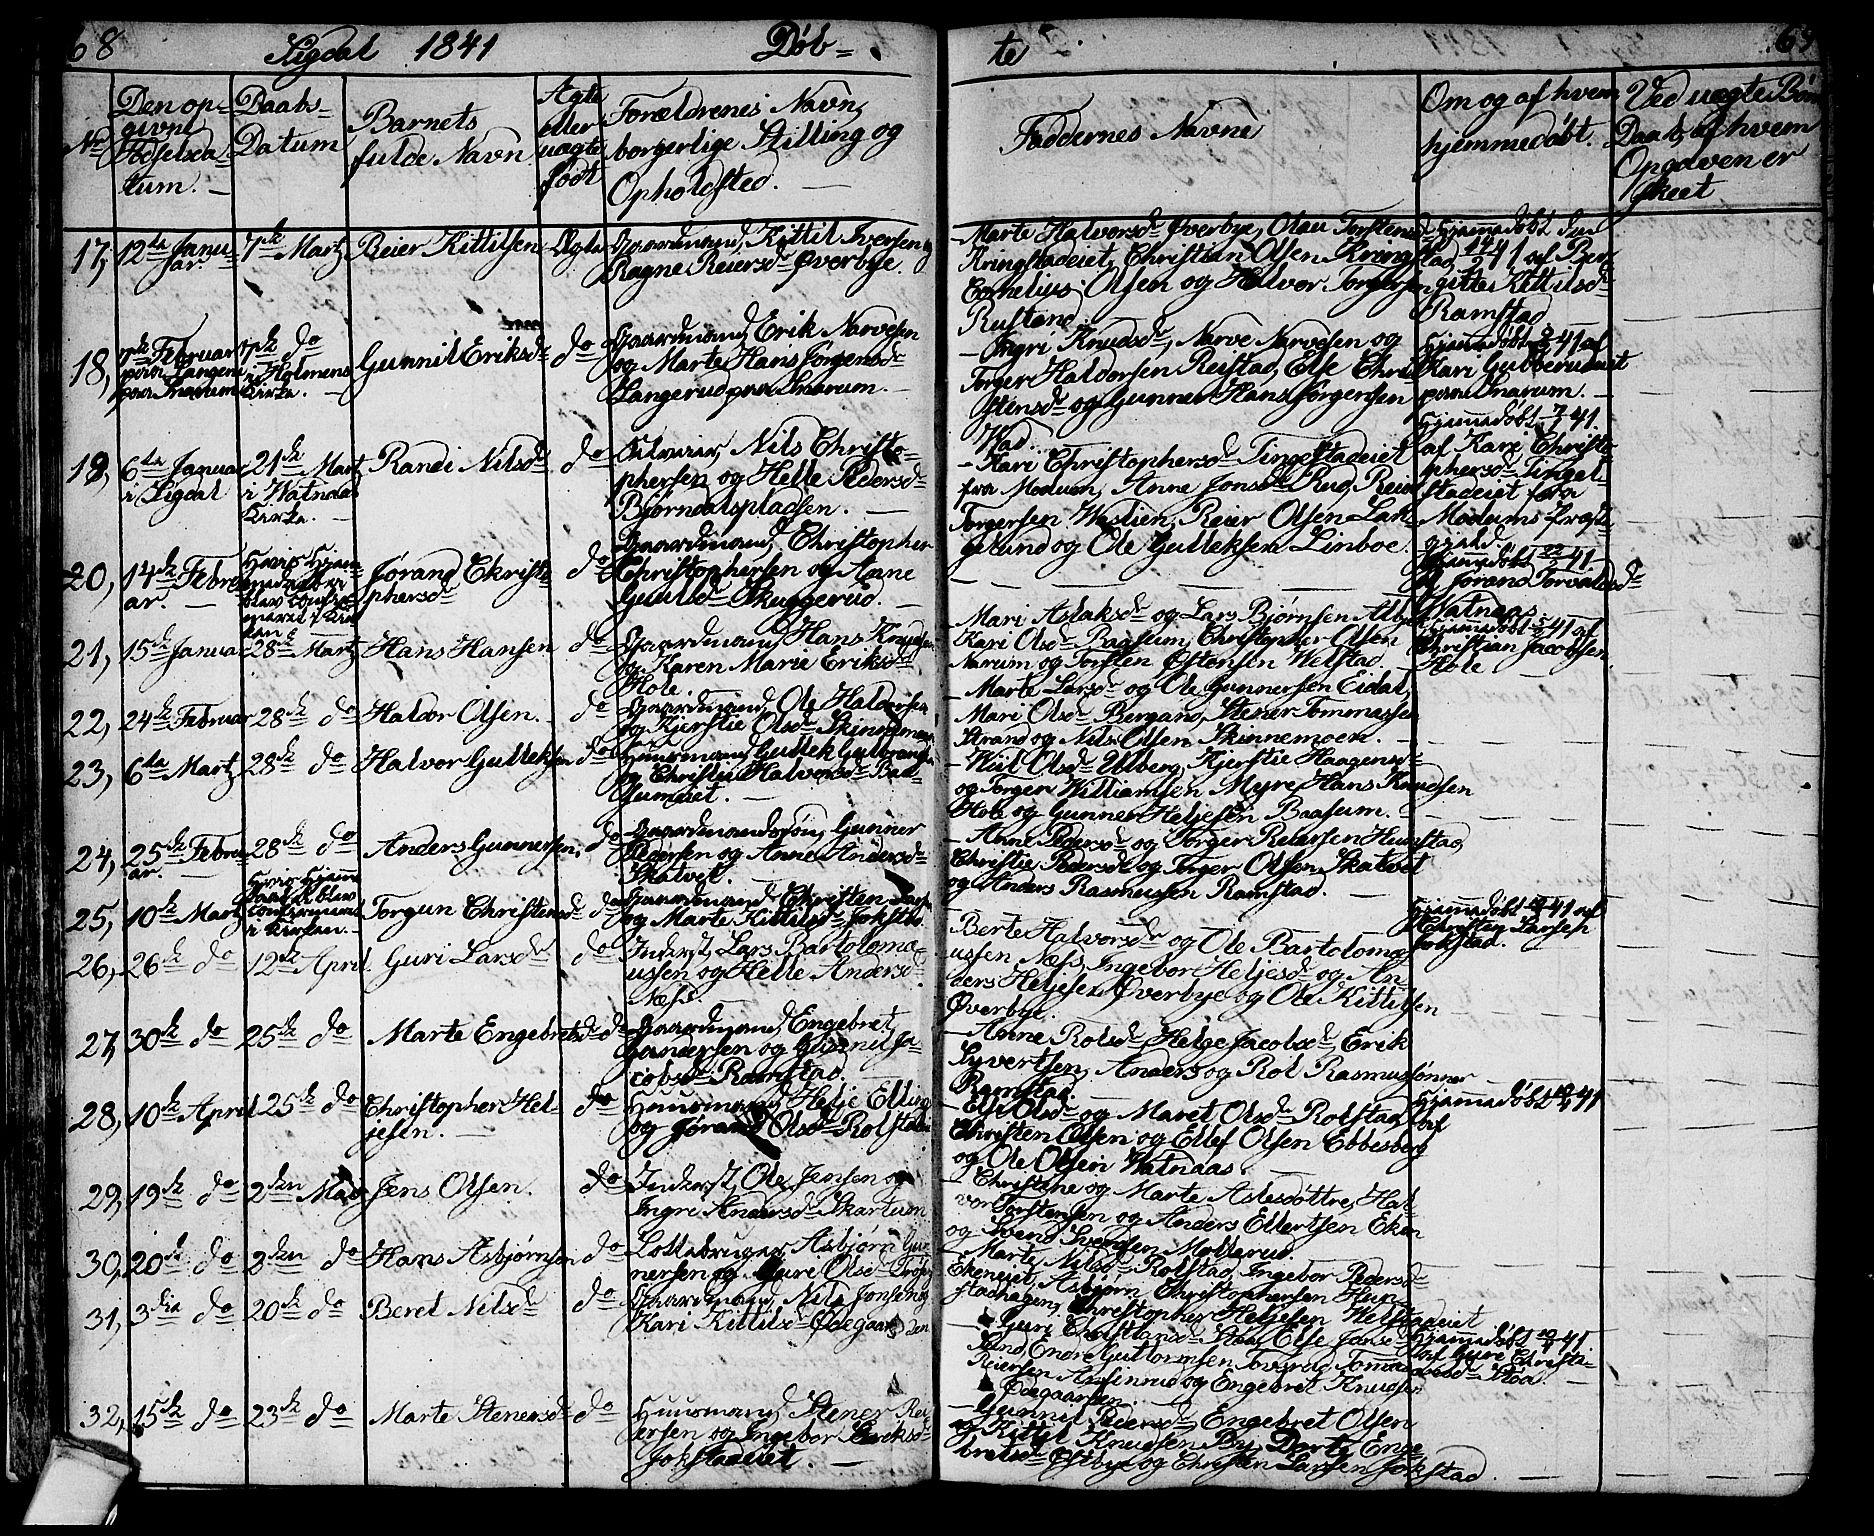 68 Sigdal 1841 Døb= te 69
No
Den op-
givne
Fødselsda
tum. —
Daabs-
Datum
Barnets
fulde Navn
Ægte
eller
uægte
født
Forældrenes Navn,
borgerlige Stilling og
Opholdsted. —
Faddernes Navne
Om og af hvem
hjemmedøbt.
Ved uægte Børn
Daab, af hvem
Opgaven er
skeet
17, 12te Janu-
ar.
7de Martz
Reier Kittilsen
Ægte
Gaardmand, Kittil Iversen og
Ragne Reiersdr Øverbye.
— Marte Halvorsdr Øverbye, Olau Torstensdr
Kringstadeiet, Christian Olsen Kringstad,
Cornelius Olsen og Halvor Torgersen
Rustand.
Hjemmedøbt den
14/2 41 af Ber-
gitte Kittilsdr
Ramstad
18, 7de Februar
paa Langerud
paa Snarum
7de do
i Holmens
Kirke. —
Gunnil Eriksdr
do
Gaardmand, Erik Narvesen
og Marte Hans Jørgensdr
Langerud paa Snarum. —
— Ingri Knudsdr, Narve Narvesen og
Torger Haldorsen Reistad, Else Chri-
stensdr og Gunner Hans Jørgensen
Hjemmedøbt 41 af
Kari Gubberudeiet
paa Snarum. —
19, 6te Januar
i Sigdal
21de Mart
i Watnaas
Kirke. —
Randi Nilsdr
do
Nils Christo-
phersen og Helle Pedersdr
Bjørndalspladsen. —
— Kari Christophersdr Tingelstadeiet
fra Modum, Anne Jonsdr Rud, Reier
Torgersen Wastien, Reier Olsen Lak-
gelund og Ole Gulleksen Linboe.
Hjemmedøbt 7 41.
af Kari Christo-
phersdr Tingel-
stadeiet fra
Modums Præste-
gield.
20, 14de Febru
ar. —
Hvis Hjem-
medaab
blev confir-
meret i Kir-
ken
Jørand Christo-
phersdr
do
Gaardmand, Christopher
Christophersen og Anne
Skuggerud. —
Hjemmedøbt 22 41
af Jørand Torvaldsdr
Watnaas
21, 15de Januar
28de Martz
Hans Hansen
do
Gaardmand Hans Knudsen
og Karen Marie Eriksdr
Hole.
Mari Aslaksdr og Lars Bjørnsen Alby
Kari Olsdr Baasum, Christopher Olsen
Narum og Torsten Østensen Welstad
Hjemmedøbt 41 af
Christian Jacobsen
Hole
22, 24de Februar
28de do
Haldor Olsen. —
do
Gaardmand, Ole Haldorsen
og Kjerstie Olsdr Skinnemoen
— Marte Larsdr og Ole Gunnersen Eidal,
Mari Olsdr Bergan, Stener Tommassen
Strand og Nils Olsen Skinnemoen. —
23, 6te Martz
28de do
Halvor Gulleksen
do
Huusmand, Gullek Gulbrandsen
og Christie Halvorsdr Baa-
sumeiet. —
— Kiil Olsdr Ulberg, Kjerstie Haagensdr
og Torger Williamsen Myre, Hans Knudsen
Hole og Gunner Heljesen Baasum. —
24, 25de Febru
ar.
28de do
Anders Gunnersen.
do
Gaardmandssøn, Gunner
Pedersen og Anne Andersdr
Skalvet.
— Anne Pedersdr og Torger Reiersen Hunstad,
Christie Pedersdr og Torger Olsen Skalvet
og Anders Rasmussen Ramstad. —
25, 10de Martz
Hvis Hjemme
daab blev
confirmeret
i Kirken. —
Torgun Christensdr
do
Gaardmand Christen Larsen
og Marte Kittilsdr Jokstad.
Hjemmedøbt 41 af
Christen Larsen
Jokstad.
26, 26de do
12de April
Guri Larsdr
do
Inderst, Lars Bartolomæ-
ussen og Helle Andersdr
Næss.
Berte Halvorsdr og Ole Bartolomæ-
ussen Næss, Ingebor Heljesdr og An-
ders Heljesen Øverbye og Ole Kittilsen
Øverbye.
27, 30de do
25de do
Marte Engebretsdr
do
Gaardmand, Engebret
Gundersen og Gunnil Ja-
cobsdr Ramstad.
— Anne Rolsdr, Helge Jacobsdr, Erik
Syvertsen, Anders og Rol Rasmussønner
Ramstad.
28, 10de April
25de do
Christopher Hel-
jesen. —
do
Huusmand, Helje Elling
og Jørand Olsdr Rolstad
— Else Olsdr og Maret Olsdr Rolstad,
Christen Olsen og Ellef Olsen Ebbesberg
og Ole Olsen Watnaas. —
Hjemmedøbt 41
af
29, 19de do
2den Mai
Jens Olsen.
do
Inderst, Ole Jensen og
Ingri Andersdr Skartum
— Christine og Marte Aslesdøttre, Hal-
vor Torstensen og Anders Ellertsen Eken
og Svend Svendsen Mollerud.
30, 20de do
2den do
Hans Asbjørnsen
do
Lottebruger, Asbjørn Gun-
nersen og Guri Olsdr
— Marte Nilsdr Rolstad, Ingebor Pedersdr
Ekeneiet, Asbjørn Christophersen Hun-
stadhagen, Christopher Heljesen Welstadeiet
31, 3die do
20de do
Beret Nilsdr
do
Gaardmand, Nils Jonsen og
Kari Kittilsdr Ødegaarden
— Guri Christiansdr Støa, Else Jonsdr
Lind, Endre Guttormsen Tovsrud, Tommas
Reiersen Aasenrud og Engebret Knudsen
Ødegaarden.
Hjemmedøbt 41
af Guri Christi-
ansdr Støa. —
32, 15de do
23de do
Marte Stenersdr
do
Huusmand, Stener Rei-
ersen og Ingebor Eriksdr
Jokstadeiet. —
— Gunnil Reiersdr, Engebret Olsen
og Kittil Knudsen By, Dorte Enge-
bretsdr Østbye og Christen Larsen Jokstad.